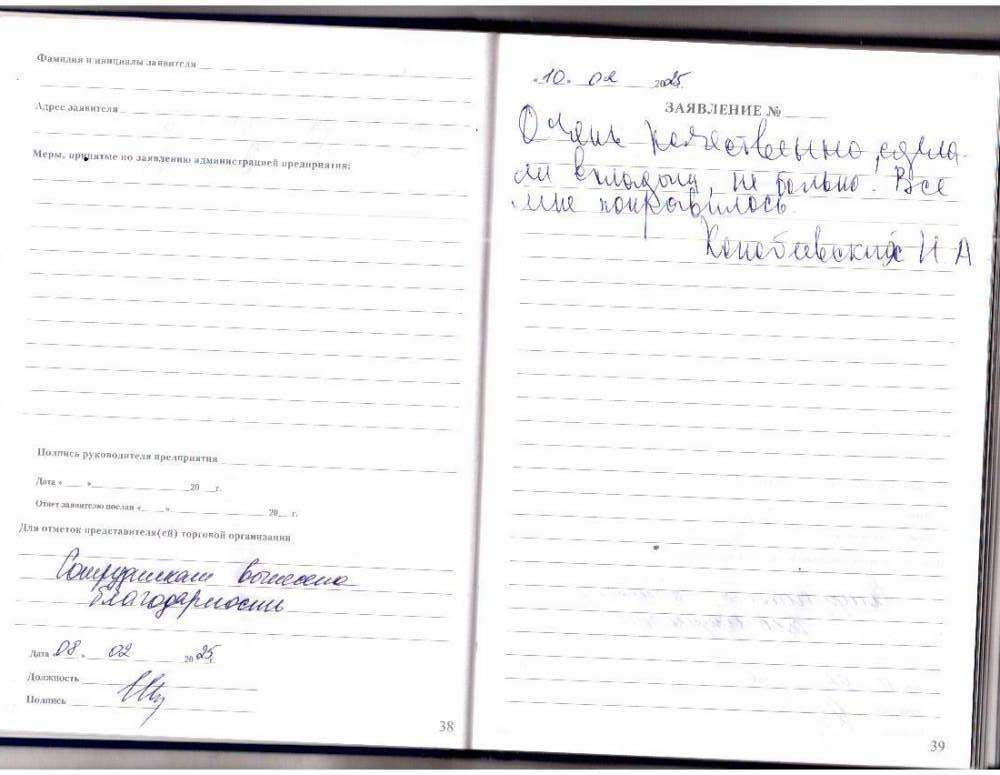 Фамилия и инициалы заявителя
Адрес заявителя
Меры, принятые по заявлению администрацией предприятия:
Подпись руководителя предприятия
Дата « » 20 г.
Ответ заявителю послан « » 20 г.
Для отметок представителя(ей) торговой организации
Сотрудникам вынесена
благодарность
Дата 08 » 02 2025г.
Должность
Подпись
38
«10» 02 2025
ЗАЯВЛЕНИЕ №
Очень качественно, сдела-
ли вкладыш, не больно. Все
мне понравилось.
Конобиевских И А
39